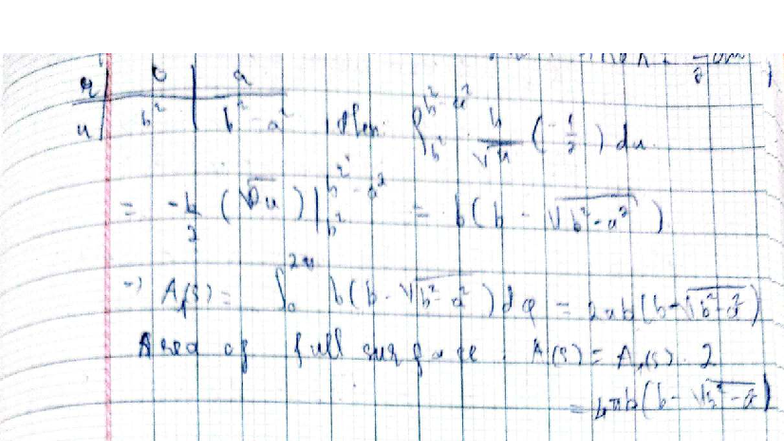 r | 0 | a
u | b² | b² - a² , then: ∫_{b²}^{b²-a²} b/√u (-1/2) du
= -b/2 (√u)|_{b²}^{b²-a²} = b(b - √(b²-a²))
→ A₁(S) = ∫₀^{2π} b(b - √(b²-a²)) dφ = 2πb(b - √(b²-a²))
Area of full surface : A(S) = A₁(S) · 2
= 4πb(b - √(b²-a²))